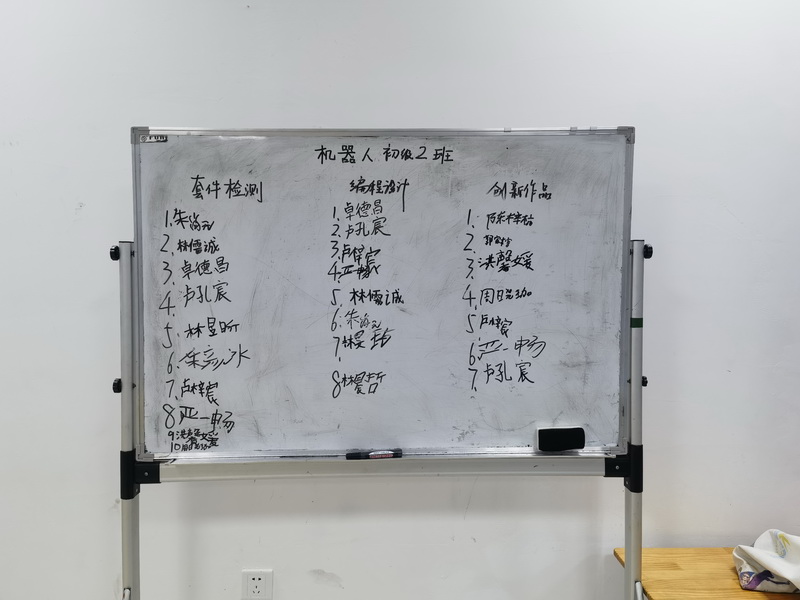 机器人初级2班
套件检测
1.朱尚元
2.林儒诚
3.卓德昌
4.卢孔宸
5.林昱昕
6.朱彦冰
7.卢梓宸
8 严一畅
9洪馨媛
10周
编程设计
1.卓德昌
2.卢孔宸
3.卢梓宸
4.严一畅
5.林儒诚
6.朱尚元
7.林昊喆
8林晨哲
创新作品
1.陈梓
2.
3.洪馨媛
4.周吕泓加
5.卢梓宸
6.严一畅
7.卢孔宸